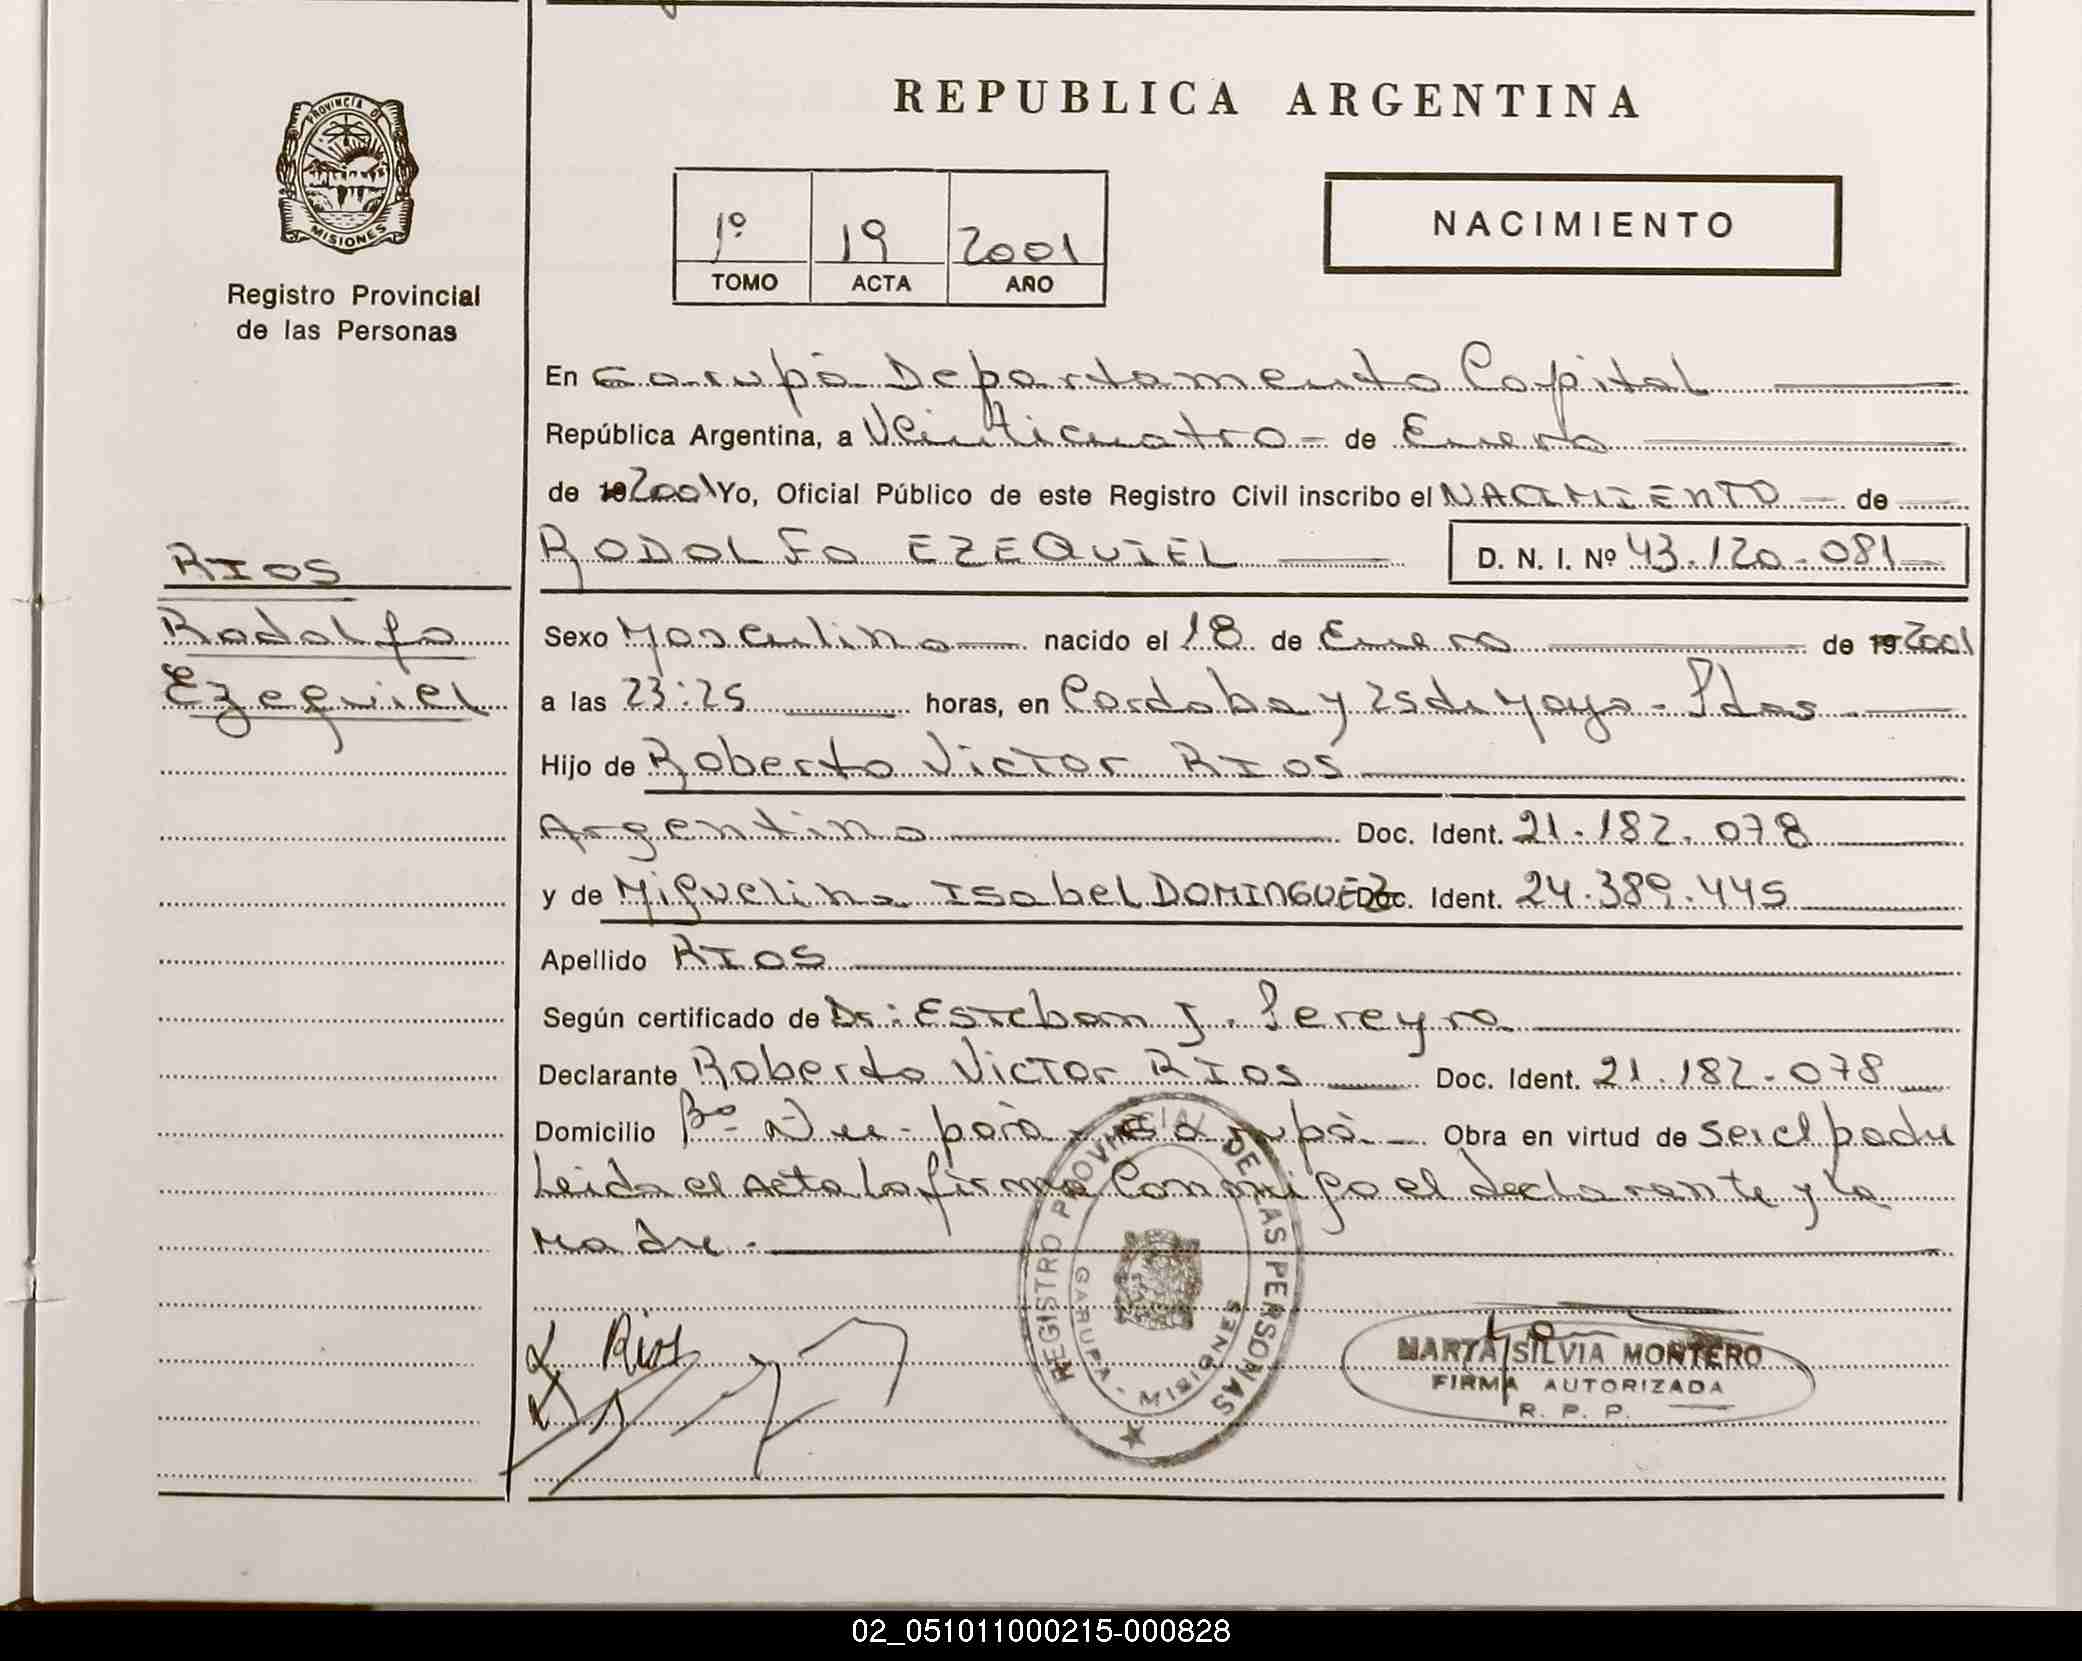 REPUBLICA ARGENTINA
PROVINCIA DE
MISIONES
Registro Provincial
de las Personas
1º 19 2001
TOMO ACTA AÑO
NACIMIENTO
En Garupá Departamento Capital
República Argentina, a Veinticuatro de Enero
de 19 2001 Yo, Oficial Público de este Registro Civil inscribo el NACIMIENTO de
RODOLFO EZEQUIEL D. N. I. Nº 43.120.081
RIOS
Rodolfo
Ezequiel
Sexo Masculino nacido el 18 de Enero de 19 2001
a las 23:25 horas, en Cordoba y 25 de Mayo - Pdas
Hijo de Roberto Victor RIOS
Argentino Doc. Ident. 21.182.078
y de Miguelina Isabel DOMINGUEZ Doc. Ident. 24.389.445
Apellido RIOS
Según certificado de Dr: Esteban J. Pereyra
Declarante Roberto Victor RIOS Doc. Ident. 21.182.078
Domicilio Bº Ñu-porá Garupá Obra en virtud de ser el padre
Leida el Acta la firma Conmigo el declarante y la
Madre.
Rios
REGISTRO PROVINCIAL DE LAS PERSONAS
GARUPA - MISIONES
MARTA SILVIA MONTERO
FIRMA AUTORIZADA
R. P. P.
02_051011000215-000828